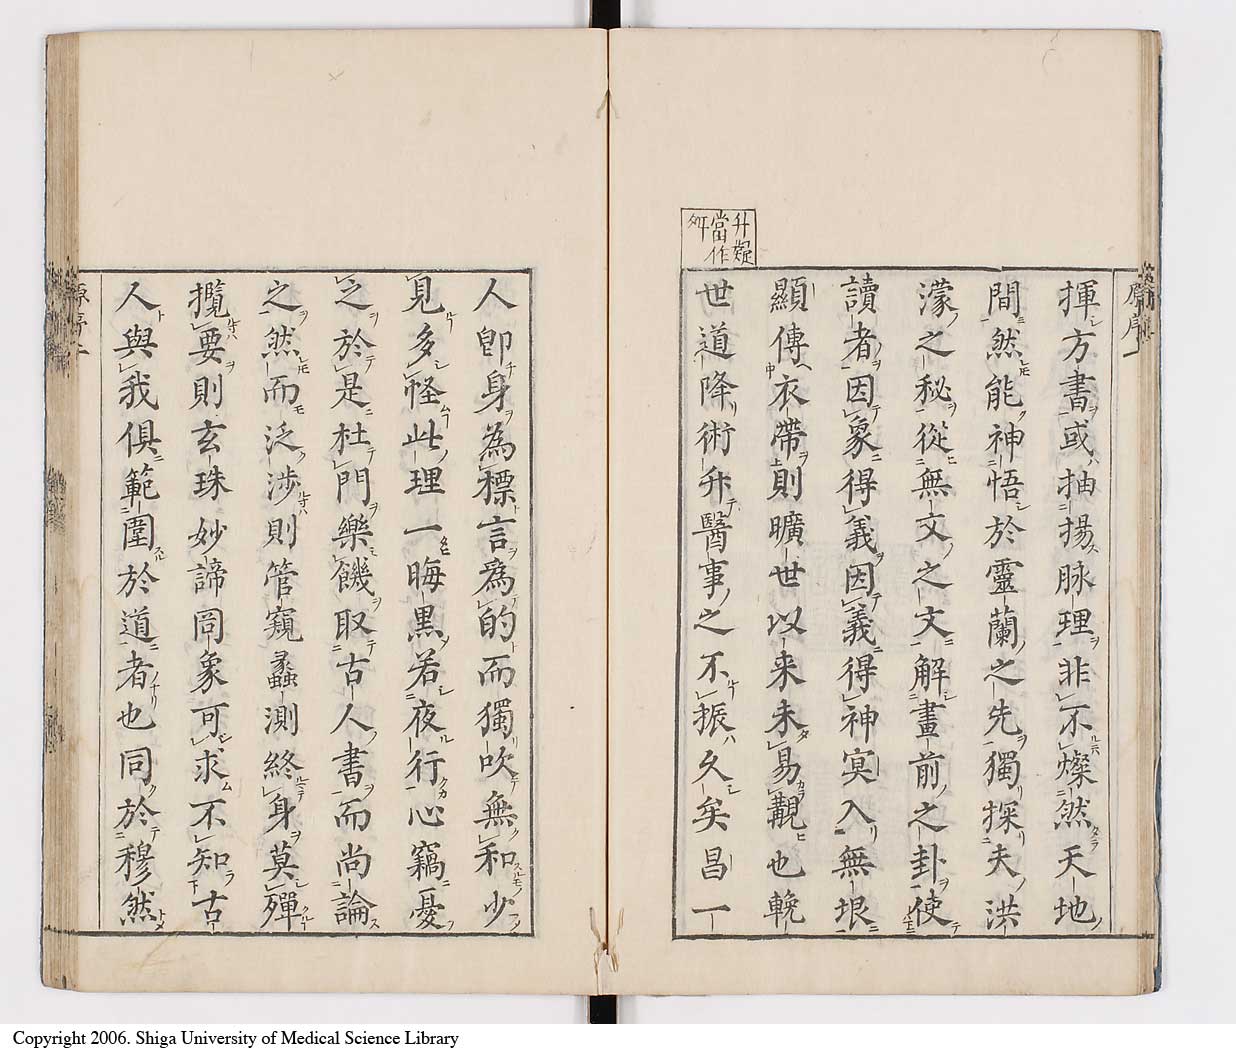 揮方書或抽揚脉理非不燦然天地
間然能神悟於靈蘭之先獨探夫洪
濛之秘從無文之文解畫前之卦使
讀者因象得義因義得神冥入無垠
顯傳衣帶則曠世以来未易覯也輓
世道降術升醫事之不振久矣昌一
升疑
當作
人卽身為標言為的而獨吹無和少
見多怪此理一晦黒若夜行心竊憂
之於是杜門樂饑取古人書而尚論
之然而泛涉則管窺蠡測終身莫殫
攬要則玄珠妙諦罔象可求不知古
人與我俱範圍於道者也同於穆然
Copyright 2006. Shiga University of Medical Science Library